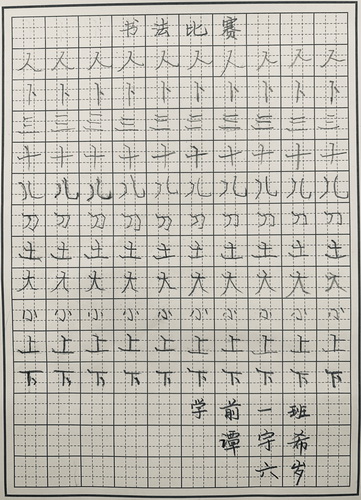 书法比赛
人人人人人人人人人人
卜卜卜卜卜卜卜卜卜卜
三三三三三三三三三三
十十十十十十十十十十
儿儿儿儿儿儿儿儿儿儿
刀刀刀刀刀刀刀刀刀刀
土土土土土土土土土土
大大大大大大大大大大
小小小小小小小小小小
上上上上上上上上上上
下下下下下下下下下下
学前一班
谭宇希
六岁